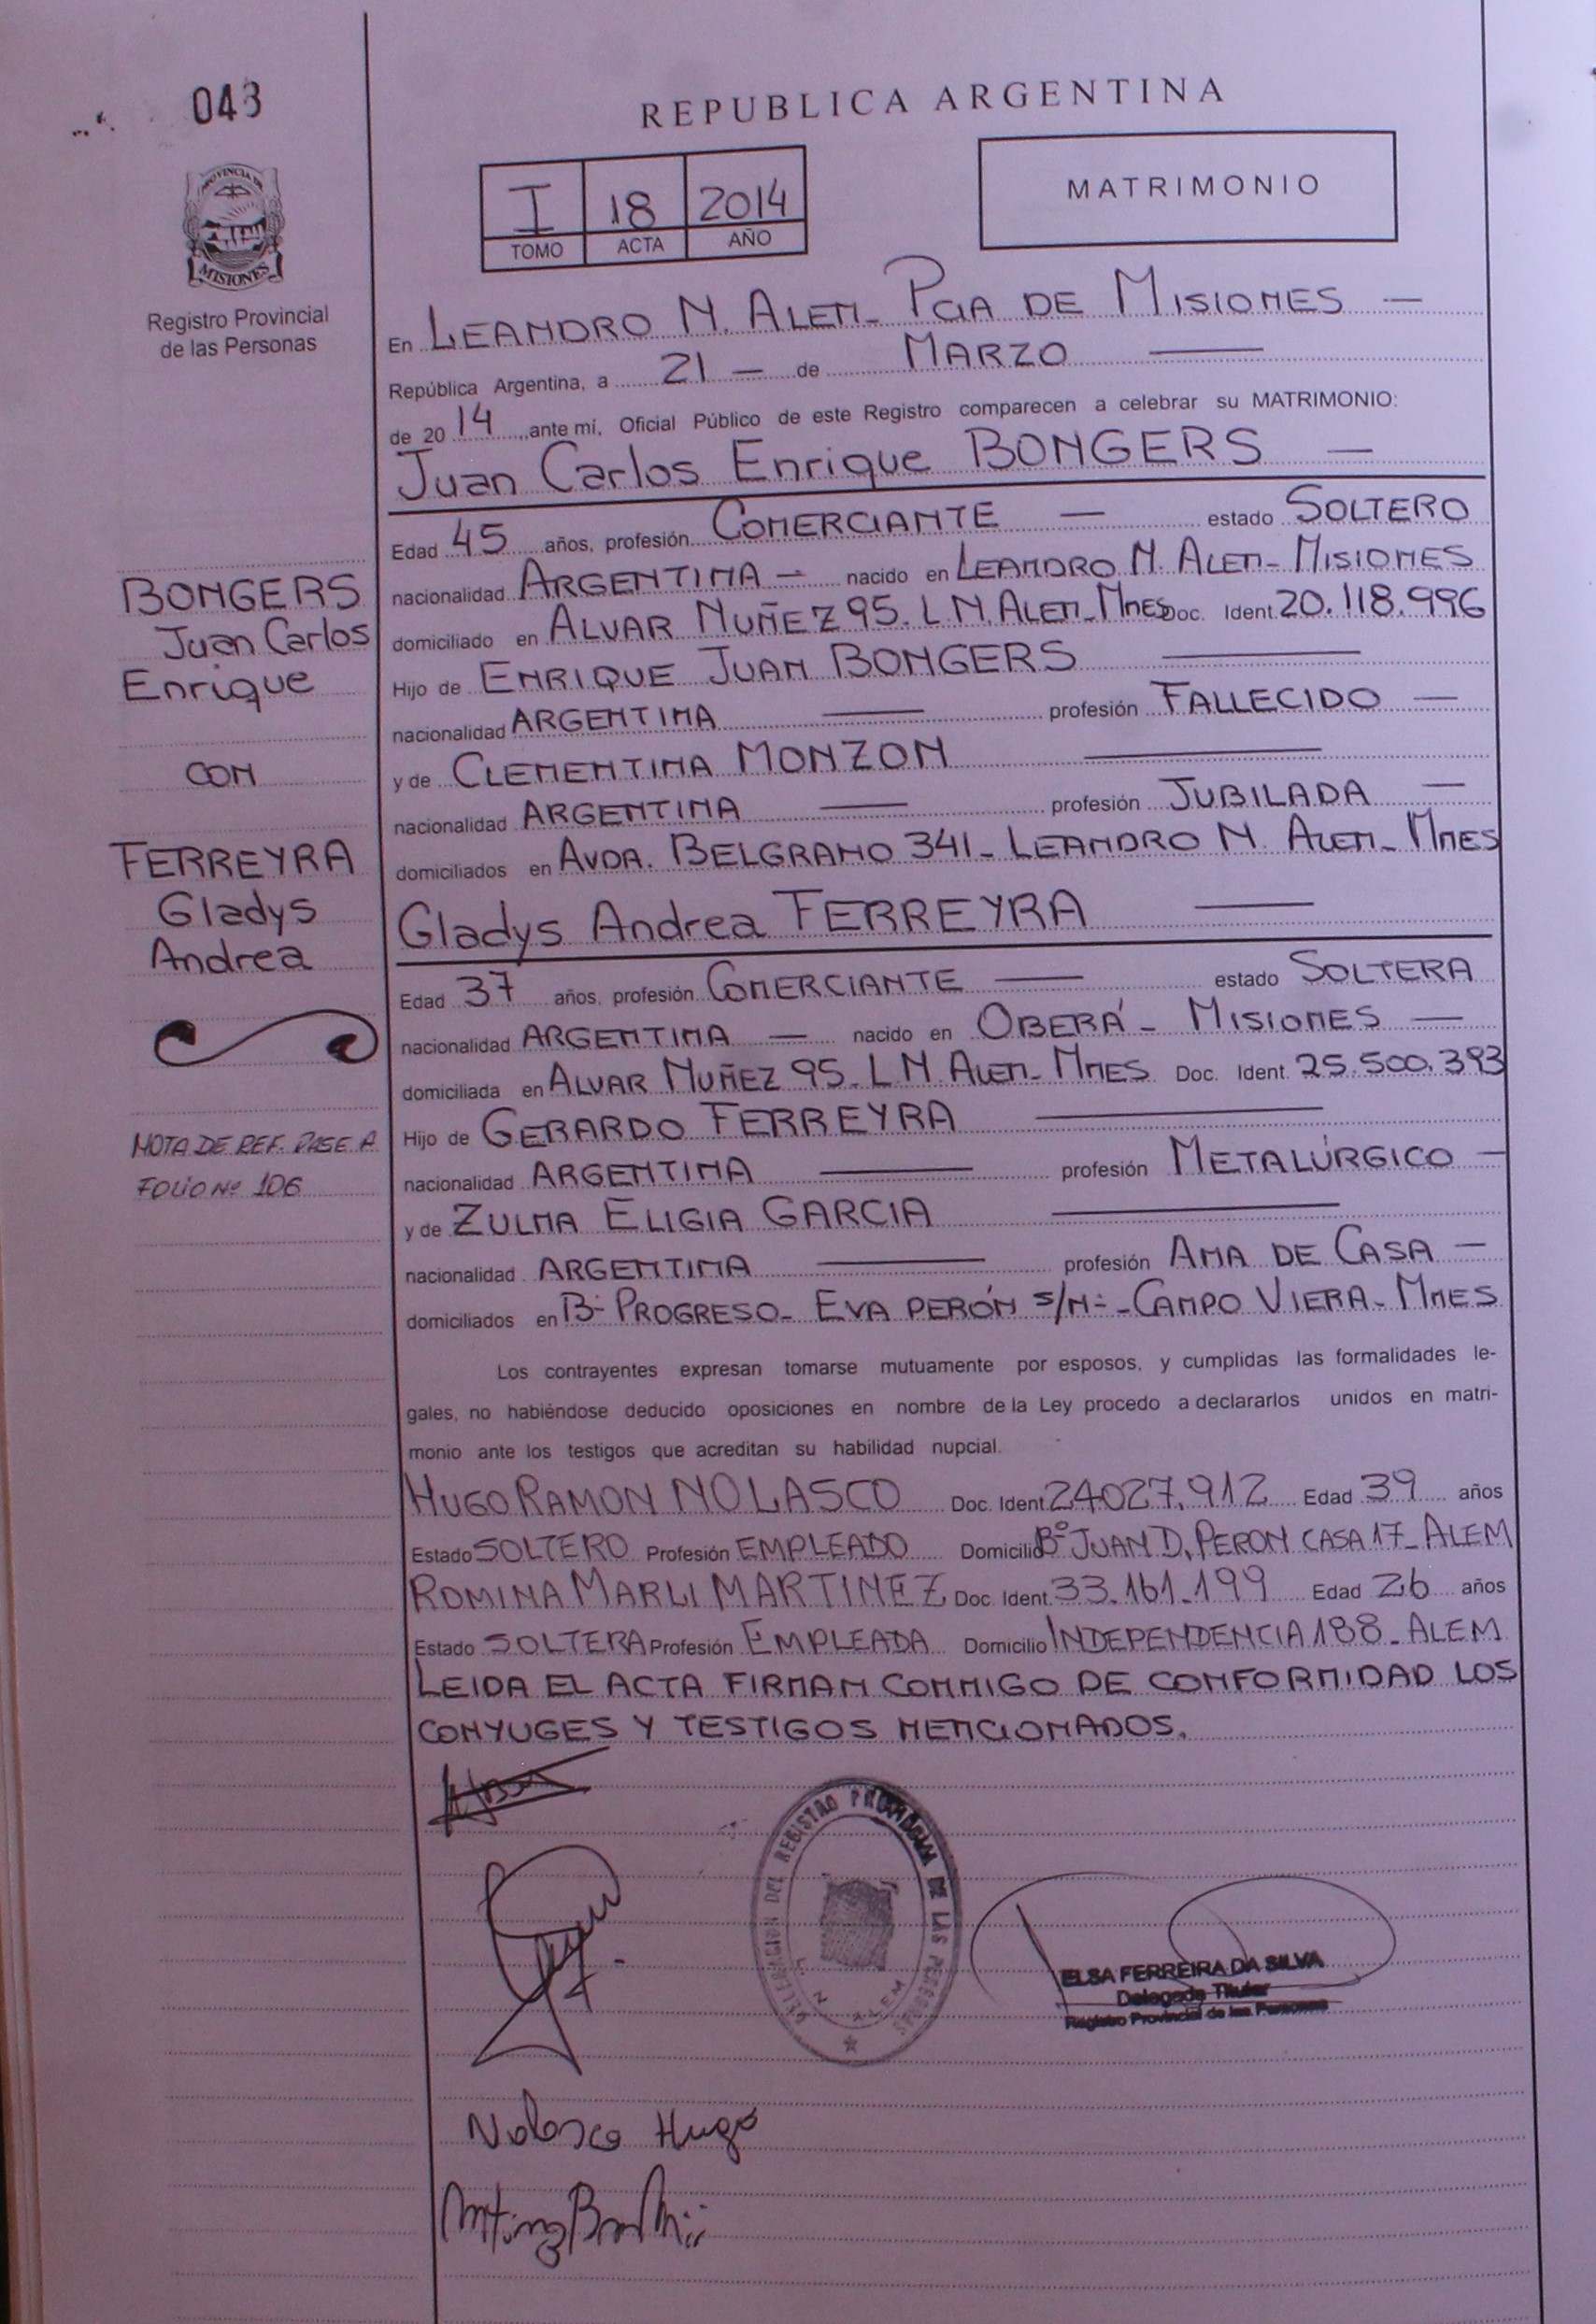 043
REPUBLICA ARGENTINA
I 18 2014
TOMO ACTA AÑO
MATRIMONIO
PROVINCIA DE
MISIONES
Registro Provincial
de las Personas
En LEANDRO N. ALEM - PCIA DE MISIONES —
República Argentina, a 21 — de MARZO —
de 2014 ante mí, Oficial Público de este Registro comparecen a celebrar su MATRIMONIO:
Juan Carlos Enrique BONGERS —
Edad 45 años, profesión COMERCIANTE — estado SOLTERO
nacionalidad ARGENTINA — nacido en LEANDRO N. ALEM - MISIONES
domiciliado en ALVAR NUÑEZ 95. L N. ALEM - MNES Doc. Ident. 20.118.996
Hijo de ENRIQUE JUAN BONGERS —
nacionalidad ARGENTINA — profesión FALLECIDO —
y de CLEMENTINA MONZON —
nacionalidad ARGENTINA — profesión JUBILADA —
domiciliados en AVDA. BELGRANO 341 - LEANDRO N. ALEM - MNES
Gladys Andrea FERREYRA —
Edad 37 años, profesión COMERCIANTE — estado SOLTERA
nacionalidad ARGENTINA — nacido en OBERÁ - MISIONES —
domiciliada en ALVAR NUÑEZ 95 - L N ALEM - MNES Doc. Ident. 25.500.393
Hijo de GERARDO FERREYRA —
nacionalidad ARGENTINA — profesión METALÚRGICO —
y de ZULMA ELIGIA GARCIA —
nacionalidad ARGENTINA — profesión AMA DE CASA —
domiciliados en B° PROGRESO - EVA PERÓN S/N° - CAMPO VIERA - MNES
BONGERS
Juan Carlos
Enrique
CON
FERREYRA
Gladys
Andrea
NOTA DE REF. PASE A
FOLIO Nº 106
Los contrayentes expresan tomarse mutuamente por esposos, y cumplidas las formalidades le-
gales, no habiéndose deducido oposiciones en nombre de la Ley procedo a declararlos unidos en matri-
monio ante los testigos que acreditan su habilidad nupcial.
HUGO RAMON NOLASCO Doc. Ident. 24.027.912 Edad 39 años
Estado SOLTERO Profesión EMPLEADO Domicilio B° JUAN D. PERON CASA 17 - ALEM
ROMINA MARLI MARTINEZ Doc. Ident. 33.161.199 Edad 26 años
Estado SOLTERA Profesión EMPLEADA Domicilio INDEPENDENCIA 188 - ALEM
LEIDA EL ACTA FIRMAN CONMIGO DE CONFORMIDAD LOS
CONYUGES Y TESTIGOS MENCIONADOS.
DELEGACION DEL REGISTRO PROVINCIAL DE LAS PERSONAS
L. N. ALEM
ELSA FERREIRA DA SILVA
Delegada Titular
Registro Provincial de las Personas
Nolasco Hugo